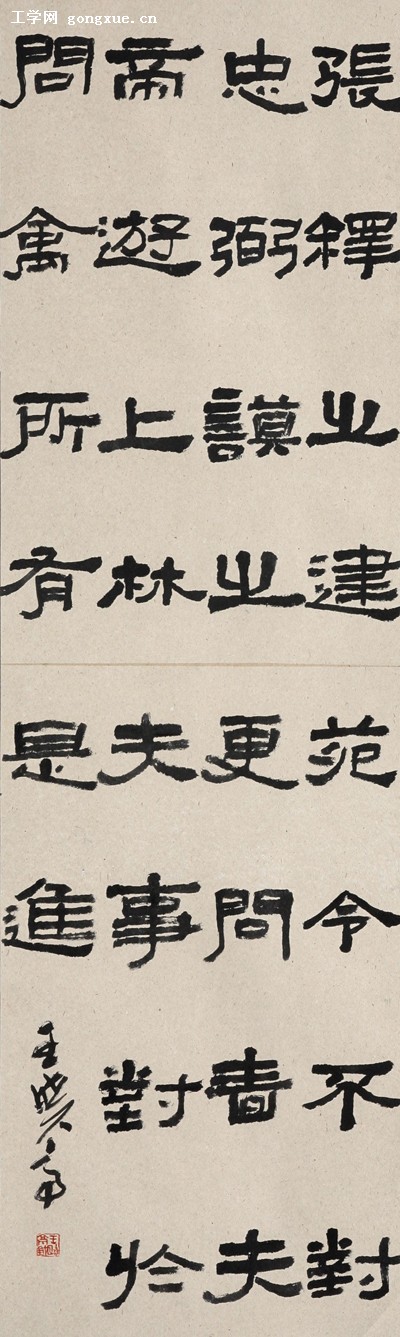 工学网 gongxue.cn
張釋之建
忠弼謨之
帝遊上林
問禽所有
苑令不對
更問嗇夫
夫事對於
是進
王